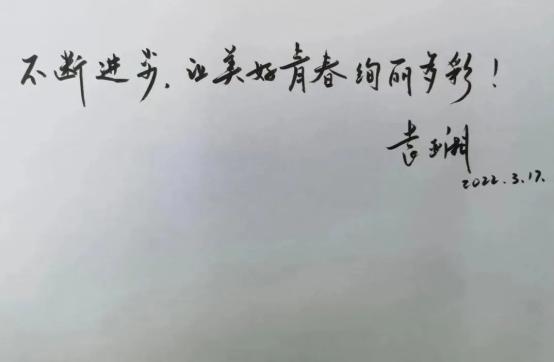 不断进步,让美好青春绚丽多彩!
袁玉湘
2022.3.17.